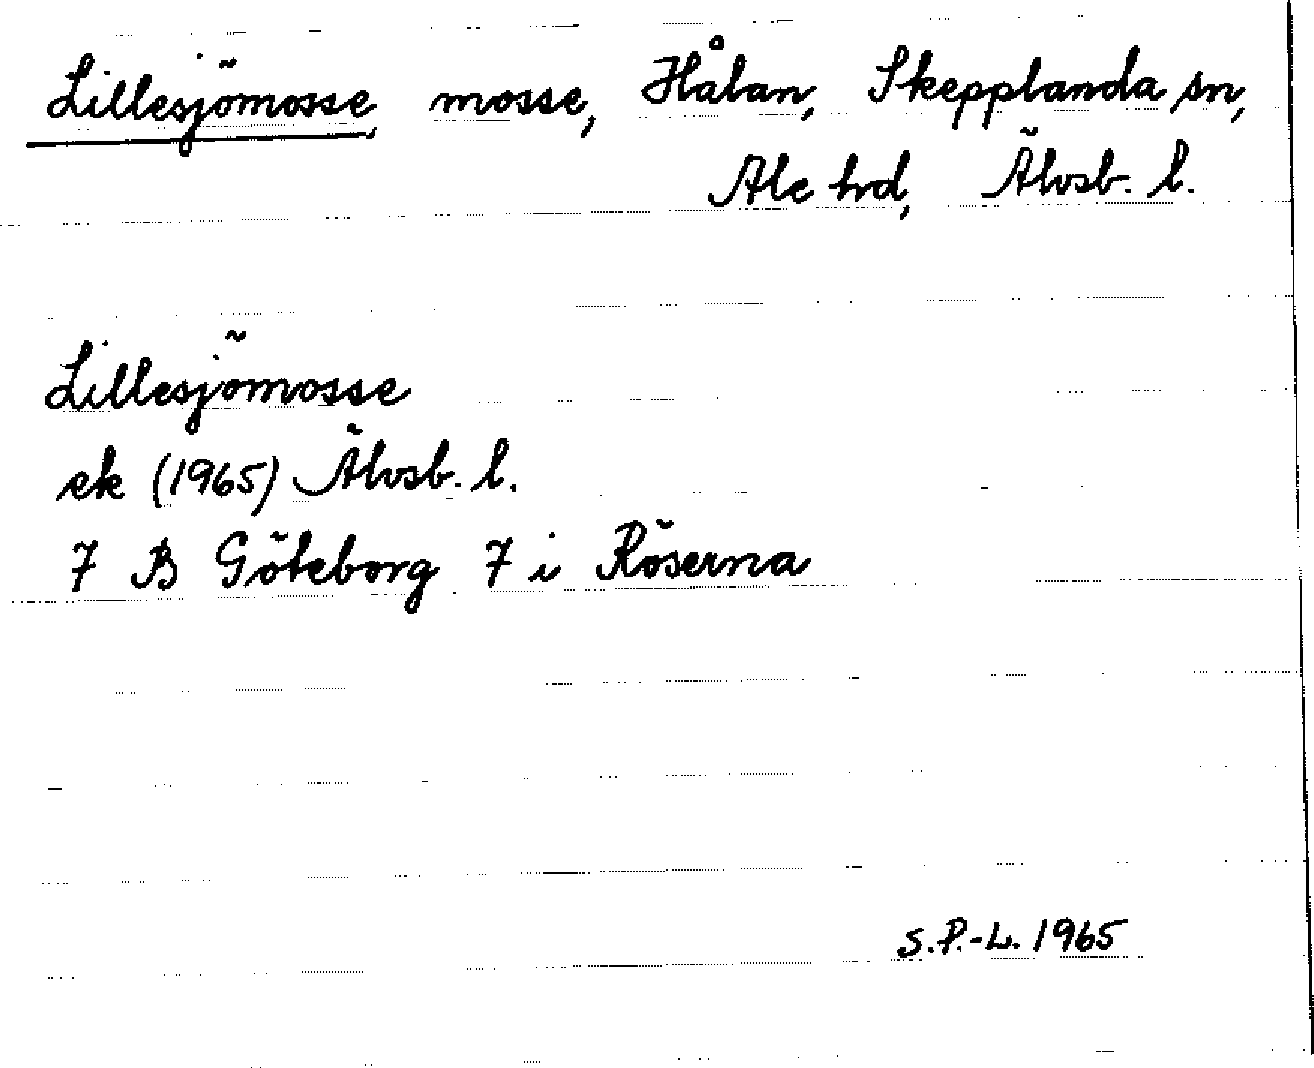 Lillesjömosse, mosse, Hålan, Skepplanda sn,
Ale hd, Älvsb. l.
Lillesjömosse
ek (1965) Älvsb. l.
7 B Göteborg 7 i Röserna
S.P.-L. 1965